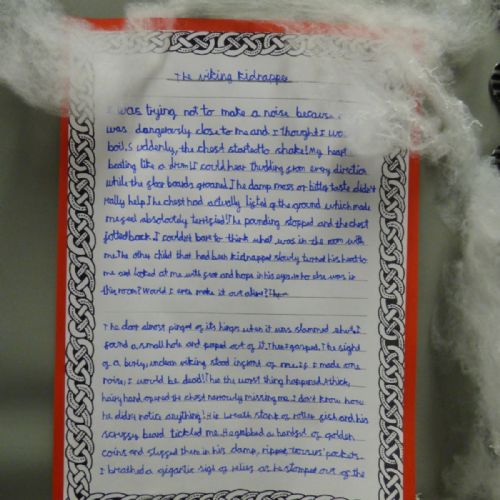 The Viking Kidnapper
I was trying not to make a noise because
was dangerously close to me and I thought I wo
boil. Suddenly, the chest started to shake! My heart
beating like a drum! I could hear thudding from every direction
while the floor boards groaned. The damp moss or bitter taste didn't
really help. The chest had actually lifted of the ground which made
me feel absolutely terrified! The pounding stopped and the chest
jolted back. I couldn't bare to think what was in the room with
me. The other child that had been kidnapped slowly turned his head to
me and looked at me with fear and hope in his eyes. who else was in
this room? Would I ever make it out alive? Then
The door almost pinged of its hinges when it was slammed shut. I
found a small hole and peeped out of it. Then I gasped. The sight
of a burly, unclean viking stood infront of me. If I made one
noise, I would be dead! Then the worst thing happened. A thick,
hairy hand opened the chest narrowly missing me. I don't know how
he didn't notice anything! His breath stank of rotten fish and his
scruffy beard tickled me. He grabbed a handful of golden
coins and stuffed them in his damp, ripped trousers' pocket.
I breathed a gigantic sigh of relief as he stomped out of the